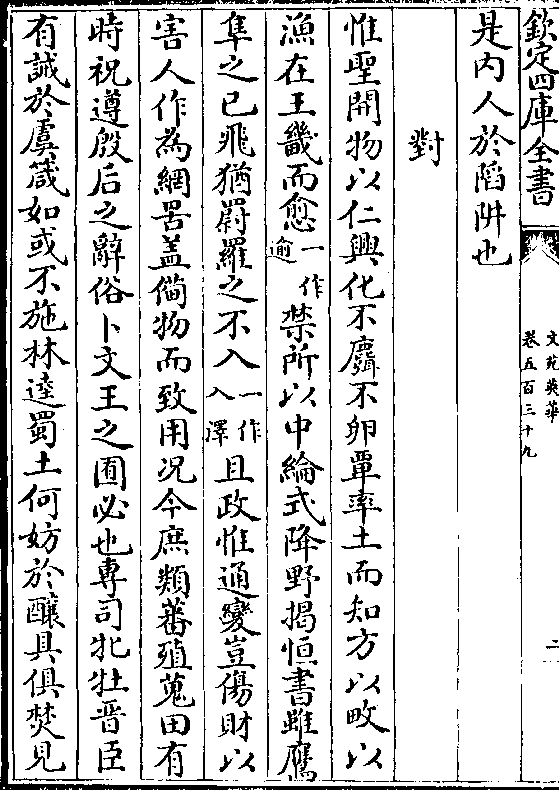 欽定四庫全書
文苑英華
卷五百三十九
二
是内人於䧟阱也
對
惟聖開物以仁興化不麛不卵覃率土而知方以畋以
漁在王畿而愈一作逾禁所以中綸式降野揭恒書雖鷹
隼之已飛猶罻羅之不入一作入澤且政惟通變豈傷財以
害人作為網罟盖備物而致用况今庶類蕃殖蒐田有
時祝遵殷后之辭俗卜文王之囿必也專司牝牡晋臣
有誠於虞箴如或不施林逵蜀土何妨於釀具俱焚見